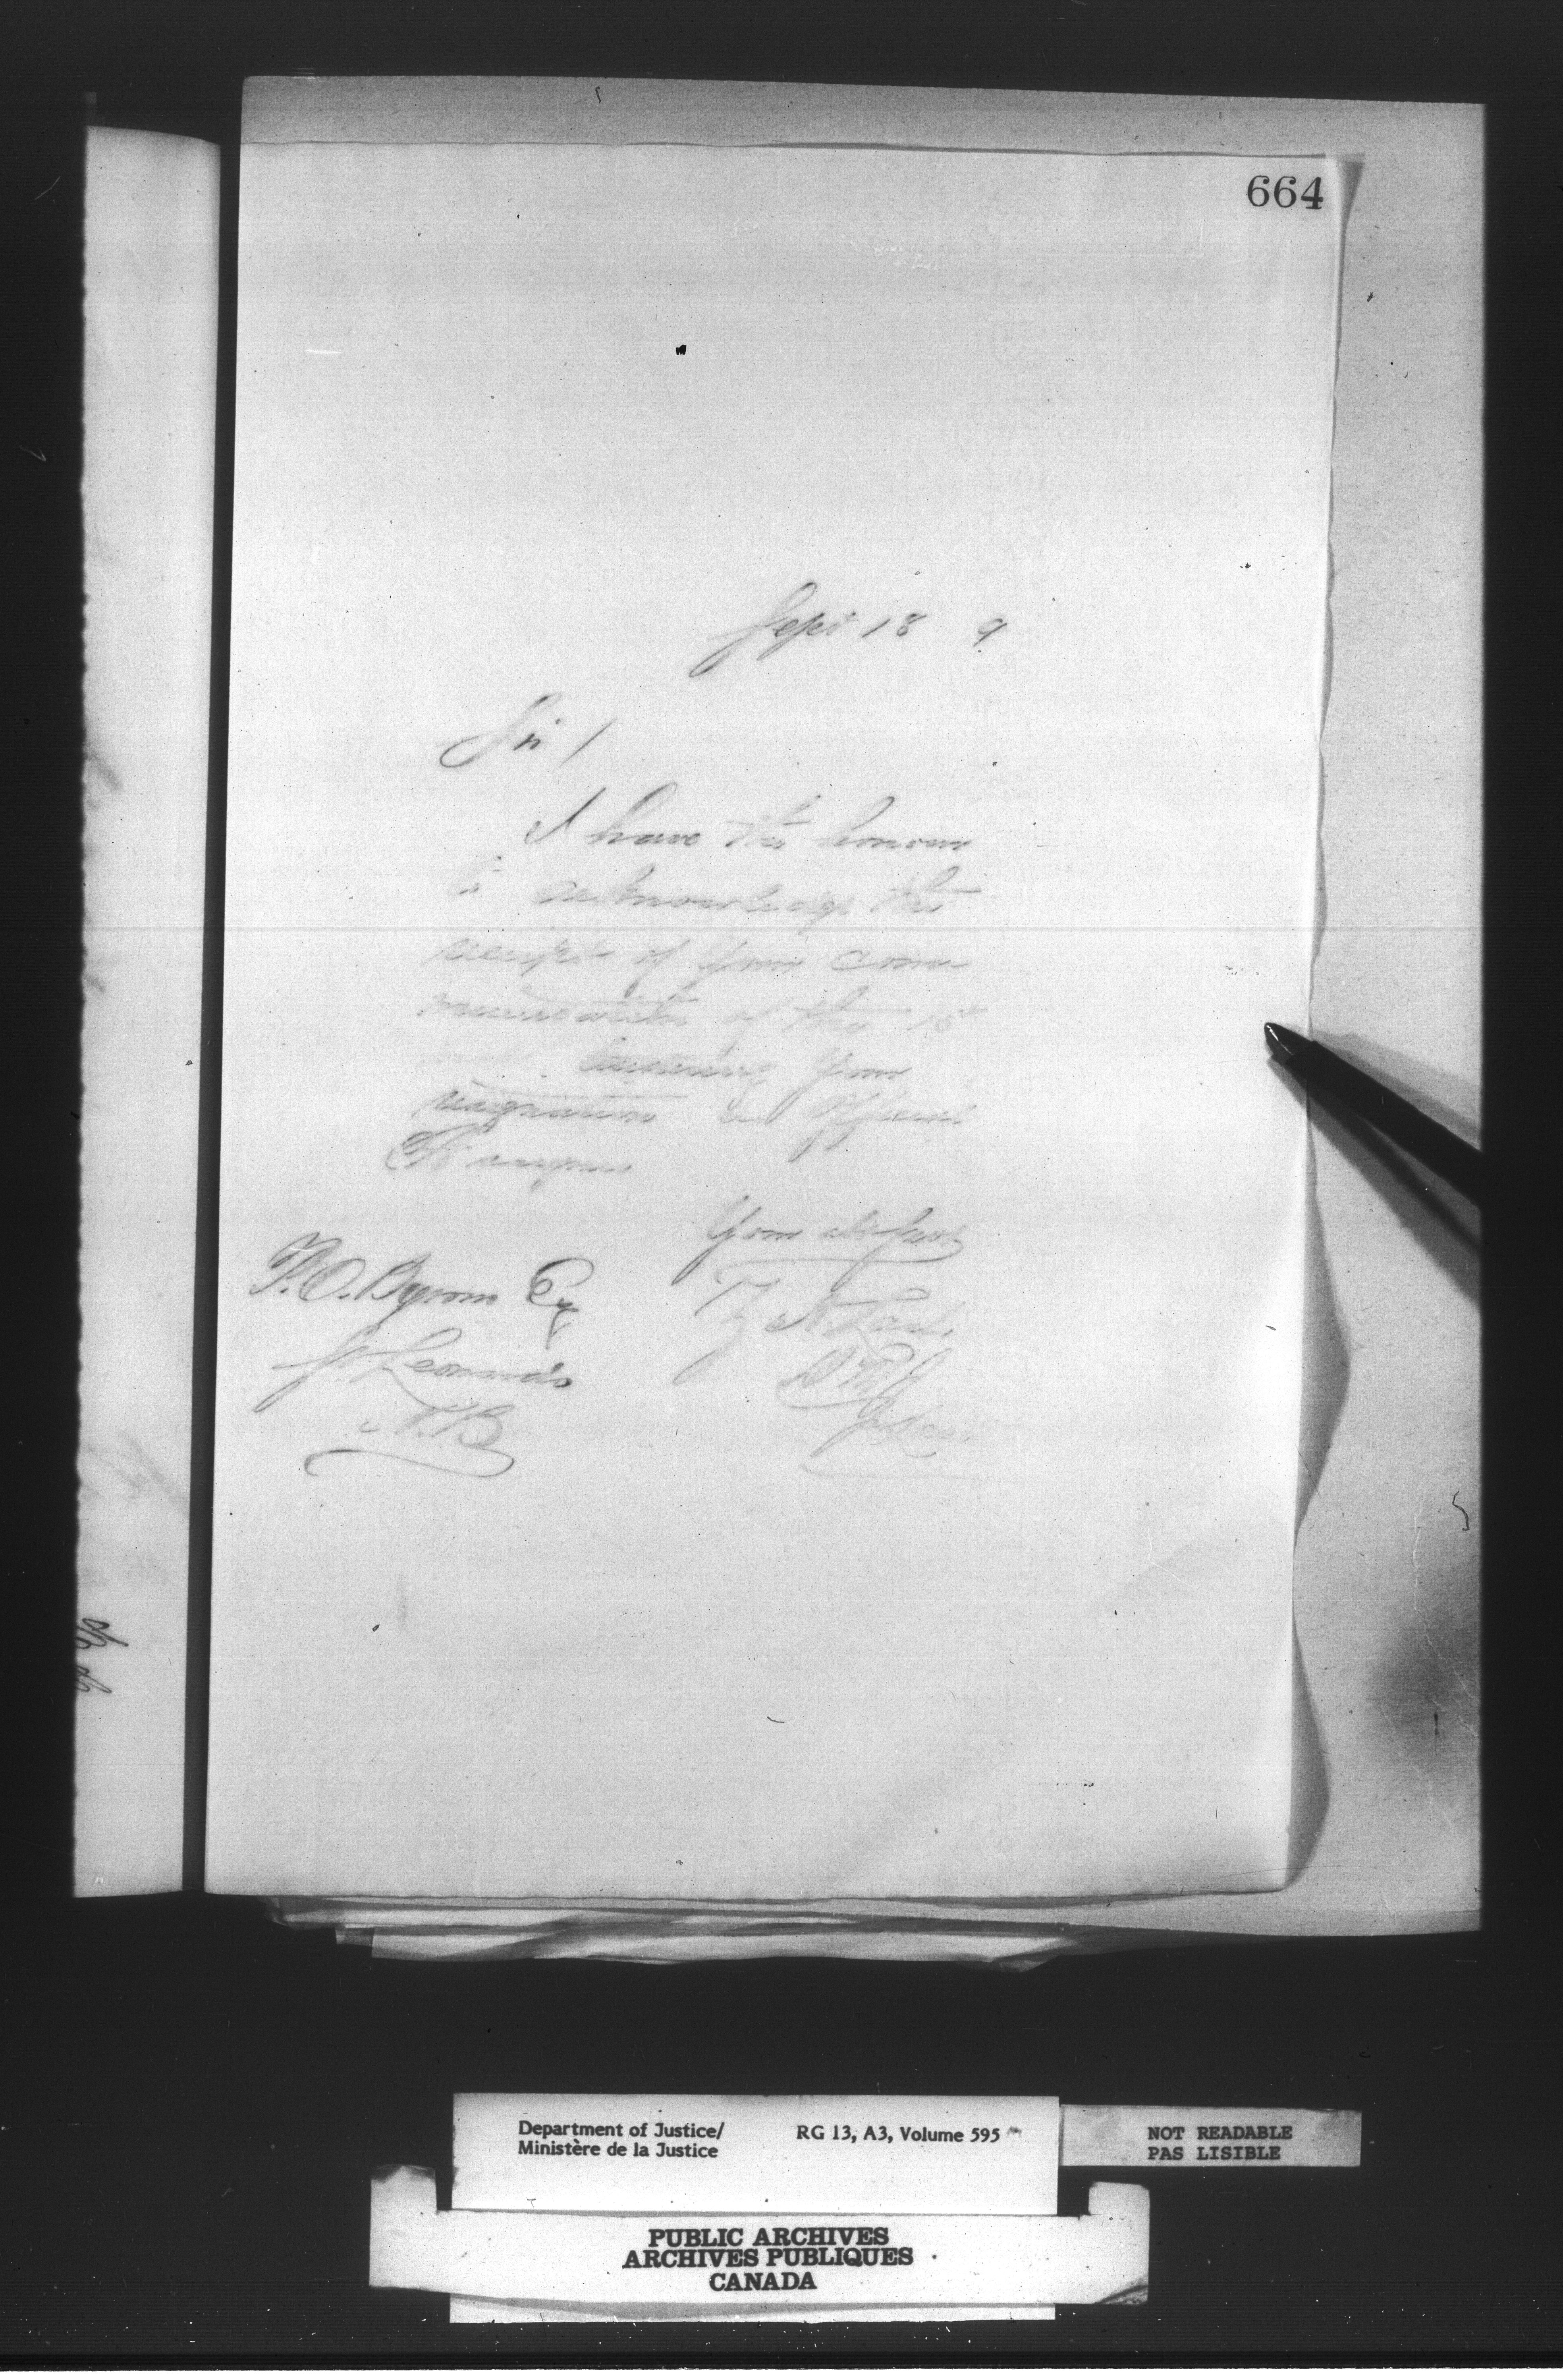 664
Sept 18 9
Sir /
I have the honour
to acknowledge the
receipt of your com
munication of the 15th
tendering your
resignation as Official
Assignee
Your obt servt
P. O. Byram Esq
St. Leonards
N.B
Z. A. Lash
D M J
Department of Justice/
Ministère de la Justice
RG 13, A3, Volume 595
NOT READABLE
PAS LISIBLE
PUBLIC ARCHIVES
ARCHIVES PUBLIQUES
CANADA